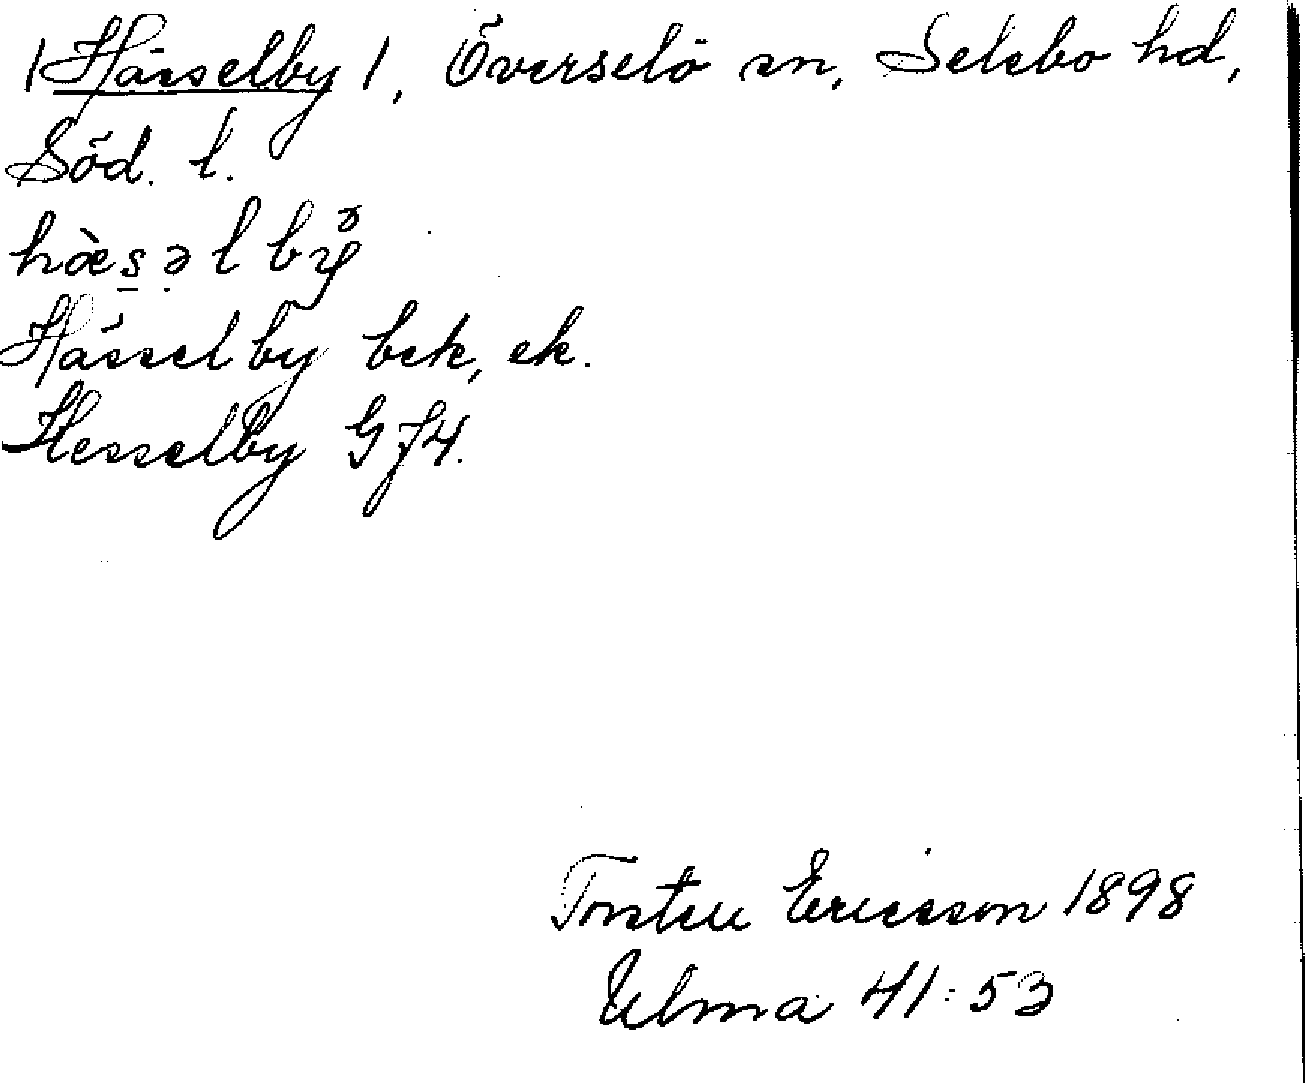 /Hässelby/, Överselö sn, Selebo hd,
Söd. l.
hæ̀s̠ə̣lby
Hässelby bek, ek.
Hesselby GJ4.
Torsten Ericsson 1898
Ulma 41:53